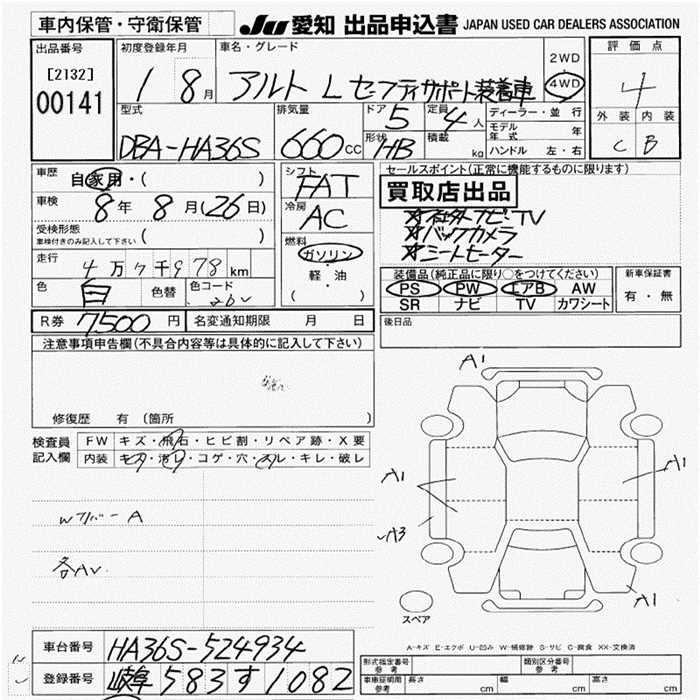 車内保管・守衛保管
JU 愛知 出品申込書 JAPAN USED CAR DEALERS ASSOCIATION
出品番号
[2132]
00141
初度登録年月
1 8月
車名・グレード
アルト L セーフティサポート装着車
2WD
4WD
評価点
4
外装 内装
C B
型式
DBA-HA36S
排気量
660cc
ドア 5
形状 HB
定員 4人
積載 kg
ディーラー・並行
モデル年式 年
ハンドル 左・右
車歴 自家用・( )
車検 8年 8月(26日)
受検形態
車検付きのみ記入して下さい ( )
走行 4万7千978km
色 白 色替 色コード 26U
シフト FAT
冷房 AC
燃料
ガソリン
軽・油
( )
セールスポイント(正常に機能するものに限ります)
買取店出品
☆社外ナビTV
☆バックカメラ
☆シートヒーター
装備品(純正品に限り○をつけてください)
PS PW エアB AW
SR ナビ TV カワシート
新車保証書
有・無
R券 7,500円 名変通知期限 月 日
後日品
注意事項申告欄(不具合内容等は具体的に記入して下さい)
修復歴 有(箇所 )
検査員記入欄
FW キズ・飛石・ヒビ割・リペア跡・X要
内装 キズ・汚レ・コゲ・穴・スレ・キレ・破レ
Wフバー A
各AU
A1
A1
A1
A3
A1
スペア
A-キズ E-エクボ U-凹み W-補修跡 S-サビ C-腐食 XX-交換済
車台番号 HA36S-524934
登録番号 岐阜 583 す 1082
形式指定番号 参考
類別区分番号 参考
車庫証明用 参考
長さ cm 幅 cm 高さ cm